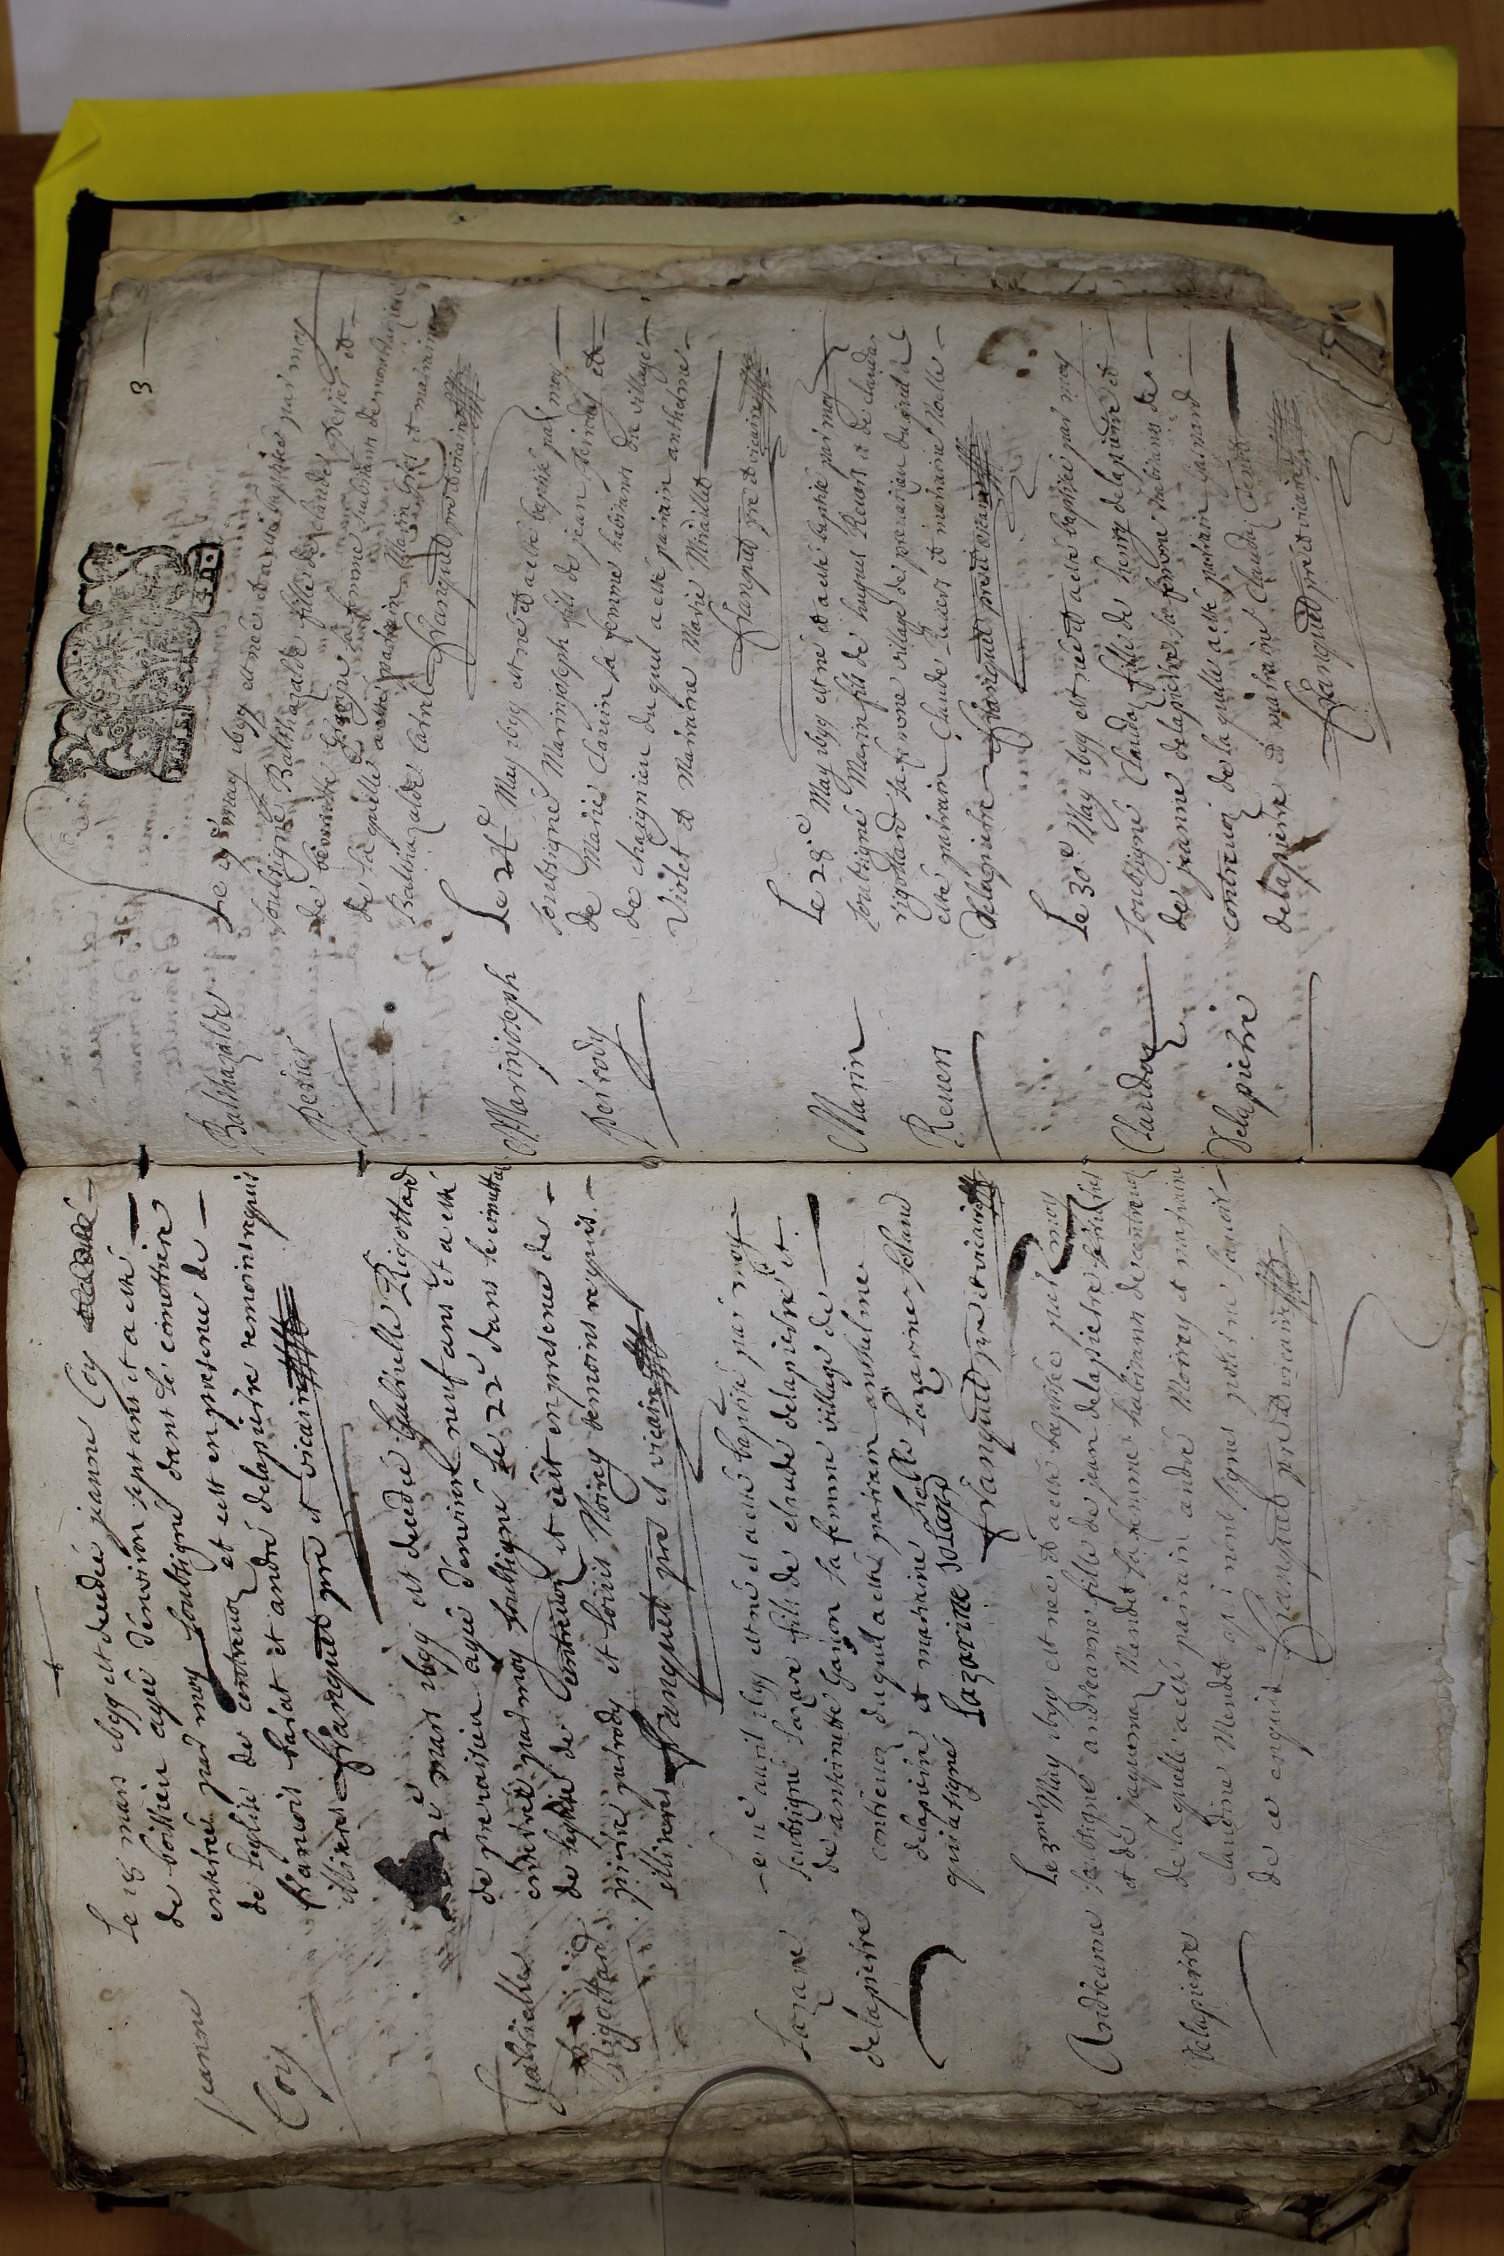 Jeanne
Coy
Le 18 mars 1699 est decedée jeanne Coy
de boissieu agée denviron sept ans et a esté
enterrée par moy soubsigné dans le cimottiere
de leglise de contrevoz et ce en presence de
francois barat et andré delapierre temoins requis
illiterés Franquet pre et vicaire
Gabrielle
Rigottard
mars 1699 est decedée Gabrielle Rigottard
de preraisieu agée denviron neuf ans et a esté
enterrée par moy soubsigné le 22e dans le cimottiere
de leglise de Contrevoz et ce en presence de
pierre peirody et louis Moirey temoins requis
illiterés Franquet pre et vicaire
Lazare
delapierre
avril 1699 est né et a esté baptisé par moy
soubsigné Lazare fils de claude delapierre et
de antoinette Ganon sa femme village de
contrevoz duquel a esté parrain anthelme
delapierre et marraine Lazarine Joland
qui a signé Lazarine Joland
Franquet pre et vicaire
Andreanne
delapierre
Le 3me May 1699 est née et a esté baptisée par moy
soubsigné andreanne fille de jean delapierre
et de jaquema Mendet sa femme habitans de contrevoz
de laquelle a esté parrain andré Moirey et marraine
claudine Mendet qui nont signés pour ne scavoir
de ce enquis Franquet pre et vicaire
3
Balthazalde
Perier
May 1699 est née et a esté baptisée par moy
soubsigné Balthazalde fille de claude Perier et
de benoitte sa femme habitans de
de laquelle a esté parrain Marin et marraine
Balthazalde Franquet pre et vicaire
Marinjoseph
Peirody
Le May 1699 est né et a esté baptisé par moy
soubsigné Marinjoseph fils de jean peirody et
de Marie Clavin sa femme habitans du village
de chaignieu duquel a esté parrain anthelme
Violet et Marraine Marie Miraillet
Franquet pre et vicaire
Marin
Revers
Le 28e May 1699 est né et a esté baptisé par moy
soubsigné Marin fils de hugues Revers et de clauda
rigottard sa femme village de preraisieu duquel a
esté parrain Claude Revers et marraine Noelle
delapierre Franquet pre et vicaire
Clauda
Delapierre
Le 30e May 1699 est née et a esté baptisée par moy
soubsigné Clauda fille de henry delapierre et
de jeanne delapierre sa femme habitans de
contrevoz de laquelle a esté parrain
delapierre et marraine Clauda
Franquet pre et vicaire